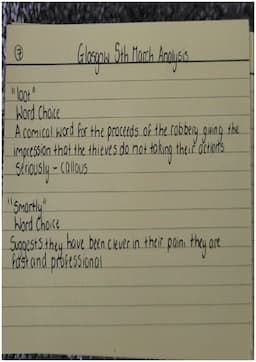 7
Glasgow 5th March Analysis
"loot"
Word Choice
A comical word for the proceeds of the robbery giving the
impression that the thieves do not taking their actions
seriously - callous
"Smartly"
Word Choice
Suggests they have been clever in their pain, they are
fast and professional